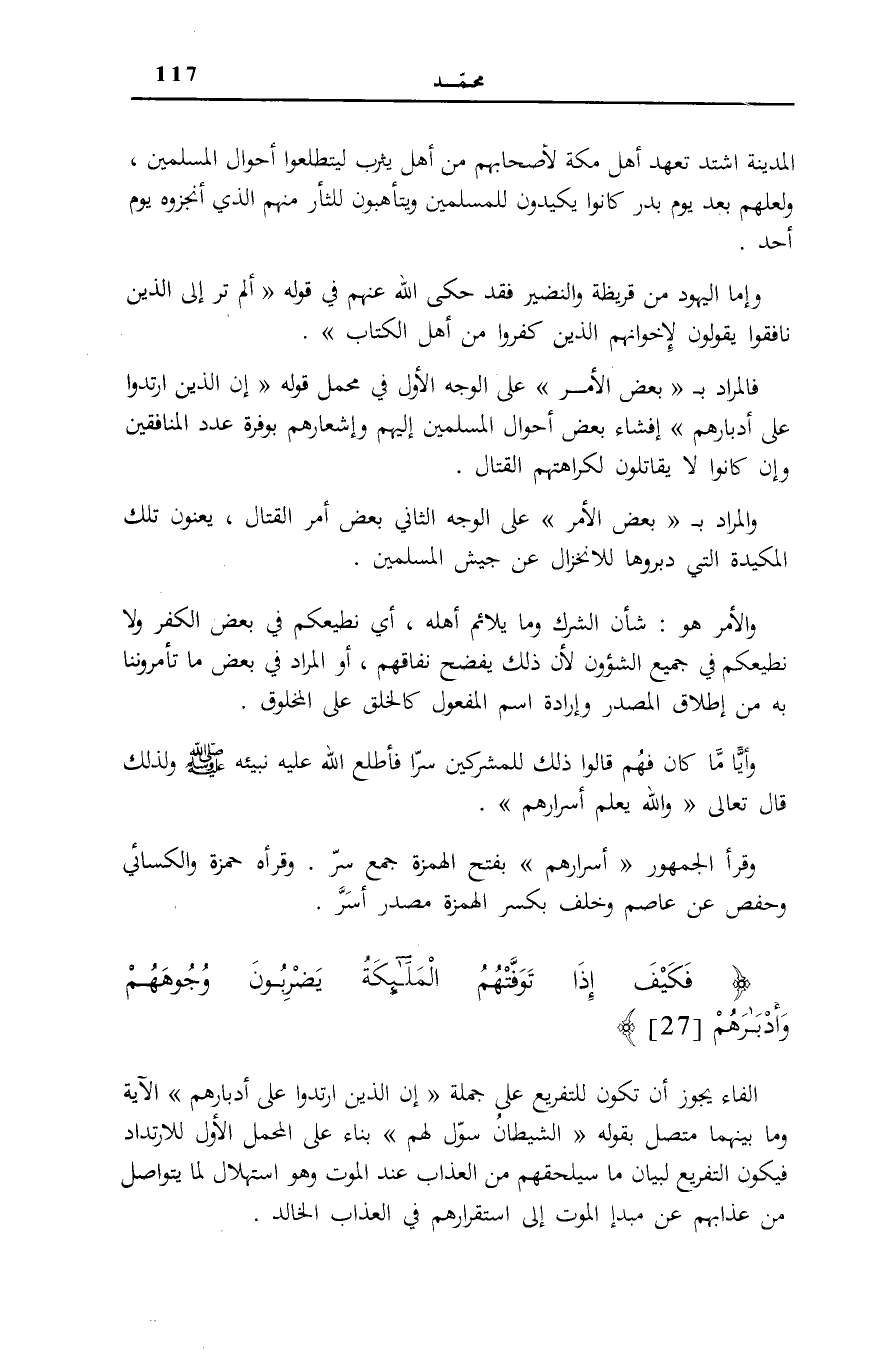 محمّد 117
المدينة اشتد تعهد أهل مكة لأصحابهم من أهل يثرب ليتطلعوا أحوال المسلمين ،
ولعلهم بعد يوم بدر كانوا يكيدون للمسلمين ويتأهبون للثأر منهم الذي أنجزوه يوم
أحد .
وإما اليهود من قريظة والنضير فقد حكى الله عنهم في قوله « ألم تر إلى الذين
نافقوا يقولون لإِخوانهم الذين كفروا من أهل الكتاب » .
فالمراد بـ « بعض الأمــر » على الوجه الأول في محمل قوله « إن الذين ارتدوا
على أدبارهم » إفشاء بعض أحوال المسلمين إليهم وإشعارهم بوفرة عدد المنافقين
وإن كانوا لا يقاتلون لكراهتهم القتال .
والمراد بـ « بعض الأمر » على الوجه الثاني بعض أمر القتال ، يعنون تلك
المكيدة التي دبروها للانخزال عن جيش المسلمين .
والأمر هو : شأن الشرك وما يلائم أهله ، أي نطيعكم في بعض الكفر ولا
نطيعكم في جميع الشؤون لأن ذلك يفضح نفاقهم ، أو المراد في بعض ما تأمروننا
به من إطلاق المصدر وإرادة اسم المفعول كالخلق على المخلوق .
وأيًّا مَّا كان فهُم قالوا ذلك للمشركين سرّا فأطلع الله عليه نبيئه ﷺ ولذلك
قال تعالى « والله يعلم أسرارهم » .
وقرأ الجمهور « أسرارهم » بفتح الهمزة جمع سرّ . وقرأه حمزة والكسائي
وحفص عن عاصم وخلف بكسر الهمزة مصدر أسَرَّ .
﴿ فَكَيْفَ إِذَا تَوَفَّتْهُمُ الْمَلَٰٓئِكَةُ يَضْرِبُونَ وُجُوهَهُمْ
وَأَدْبَٰرَهُمْ [27] ﴾
الفاء يجوز أن تكون للتفريع على جملة « إن الذين ارتدوا على أدبارهم » الآية
وما بينهما متصل بقوله « الشيطانُ سوّل لهم » بناء على المحمل الأول للارتداد
فيكون التفريع لبيان ما سيلحقهم من العذاب عند الموت وهو استهلال لما يتواصل
من عذابهم عن مبدإ الموت إلى استقرارهم في العذاب الخالد .